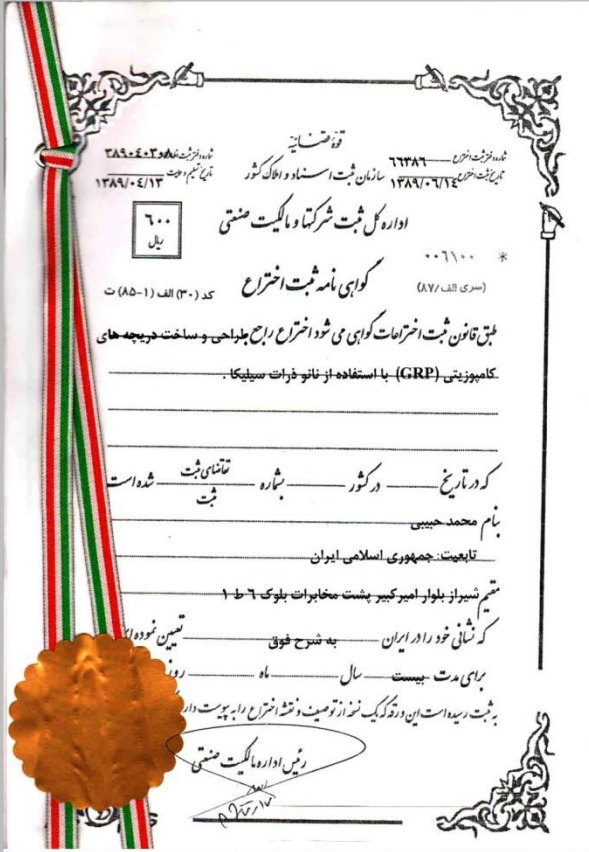 قوه قضائیه
شماره دفتر ثبت اختراع ۶۶۳۸۶
تاریخ ثبت اختراع ۱۳۸۹/۰۶/۱۴
سازمان ثبت اسناد و املاک کشور
۳۸۹۰۴۰۳
۱۳۸۹/۰٤/۱۳
اداره کل ثبت شرکتها و مالکیت صنعتی
۶۰۰
ریال
* ۰۰٦۱۰۰
(سری الف/۸۷)
گواهی نامه ثبت اختراع
کد (۳۰) الف (۱-۸۵) ت
طبق قانون ثبت اختراعات گواهی می شود اختراع راجع بطراحی و ساخت دریچه های
کامپوزیتی (GRP) با استفاده از نانو ذرات سیلیکا .
که در تاریخ در کشور بشماره تقاضای ثبت شده است
ثبت
بنام محمد حبیبی
تابعیت: جمهوری اسلامی ایران
مقیم شیراز بلوار امیرکبیر پشت مخابرات بلوک ٦ ط ۱
که نشانی خود را در ایران به شرح فوق تعیین نموده
برای مدت بیست سال ماه روز
به ثبت رسیده است این ورقه که یک نسخه از توصیف و نقشه اختراع را به پیوست دارد
رئیس اداره مالکیت صنعتی